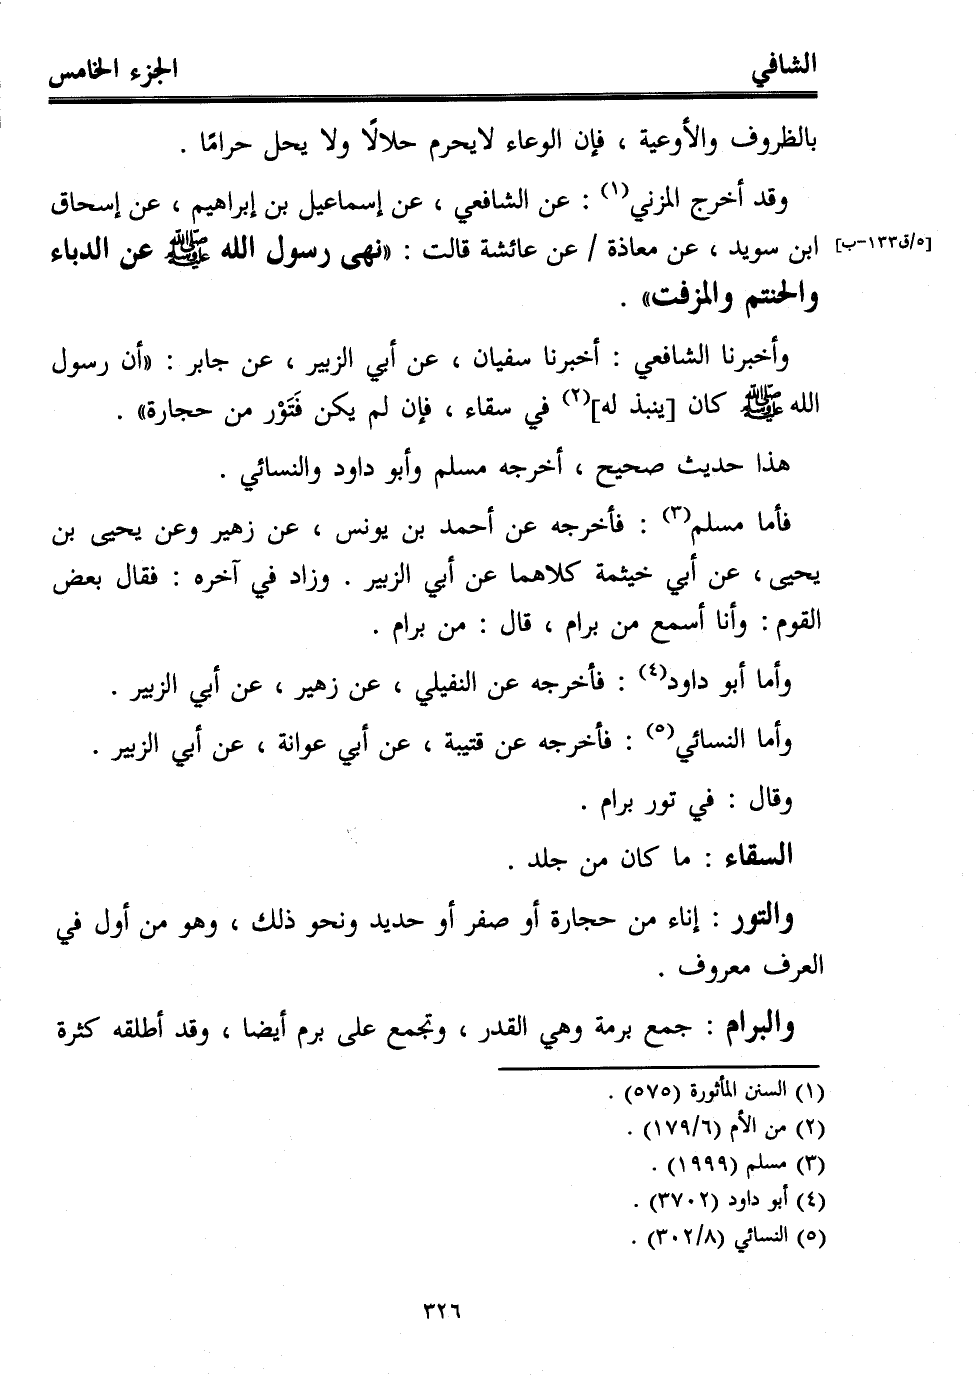 الشافي الجزء الخامس
بالظروف والأوعية ، فإن الوعاء لايحرم حلالًا ولا يحل حرامًا .
وقد أخرج المزني(١) : عن الشافعي ، عن إسماعيل بن إبراهيم ، عن إسحاق
[٥/ق١٣٣-ب] ابن سويد ، عن معاذة / عن عائشة قالت : «نهى رسول الله ﷺ عن الدباء
والحنتم والمزفت» .
وأخبرنا الشافعي : أخبرنا سفيان ، عن أبي الزبير ، عن جابر : «أن رسول
الله ﷺ كان [ينبذ له](٢) في سقاء ، فإن لم يكن فَتَوْر من حجارة» .
هذا حديث صحيح ، أخرجه مسلم وأبو داود والنسائي .
فأما مسلم(٣) : فأخرجه عن أحمد بن يونس ، عن زهير وعن يحيى بن
يحيى ، عن أبي خيثمة كلاهما عن أبي الزبير . وزاد في آخره : فقال بعض
القوم : وأنا أسمع من برام ، قال : من برام .
وأما أبو داود(٤) : فأخرجه عن النفيلي ، عن زهير ، عن أبي الزبير .
وأما النسائي(٥) : فأخرجه عن قتيبة ، عن أبي عوانة ، عن أبي الزبير .
وقال : في تور برام .
السقاء : ما كان من جلد .
والتور : إناء من حجارة أو صفر أو حديد ونحو ذلك ، وهو من أول في
العرف معروف .
والبرام : جمع برمة وهي القدر ، وتجمع على برم أيضا ، وقد أطلقه كثرة
(١) السنن المأثورة (٥٧٥) .
(٢) من الأم (١٧٩/٦) .
(٣) مسلم (١٩٩٩) .
(٤) أبو داود (٣٧٠٢) .
(٥) النسائي (٣٠٢/٨) .
٣٢٦